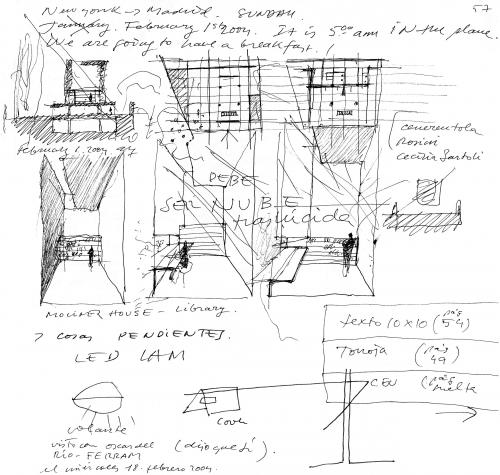 New York → Madrid. SUNDAY. 57
January. February 1st 2004. It is 5:00 am in the plane.
We are going to have a breakfast!
February 1. 2004
cenerentola
Rosini
Cecilia Bartoli
DEBE
SER NUBE
traslucida
MOLINER HOUSE - Library.
7 cosas PENDIENTES.
LED LAM
texto 10x10 (pág 54)
Torroja (pág 49)
CEU (pág vuelta)
volante
visto con oscar del
RIO-FERRAM
el miércoles 18. febrero 2004.
(dijo que sí).